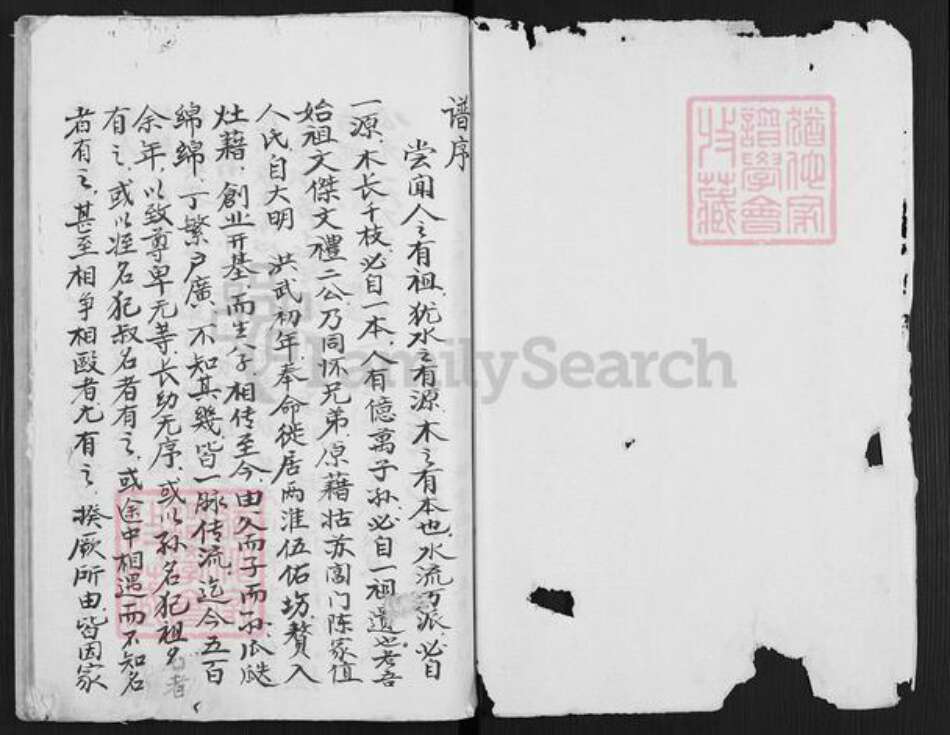 谱序
尝闻人之有祖，犹水之有源，木之有本也，水流万派，必自
一源，木长千枝，必自一本，人有億萬子孙，必自一祖遗也。考吾
始祖文傑文禮二公，乃同怀兄弟，原籍姑苏阊门陈家值
人氏，自大明　洪武初年，奉命徙居两淮伍佑坊，赘入
灶藉，創业开基，而生八子，相传至今，由人而子而孙，瓜瓞
綿綿，丁繁户廣，不知其幾，皆一脉传流，迄今五百
余年，以致尊卑无等，长幼无序，或以孙名犯祖名者
有之，或以姪名犯叔名者有之，或途中相遇而不知名
者有之，甚至相争相毆者尤有之，揆厥所由，皆因家
猶他家
譜學會
收藏
FamilySearch